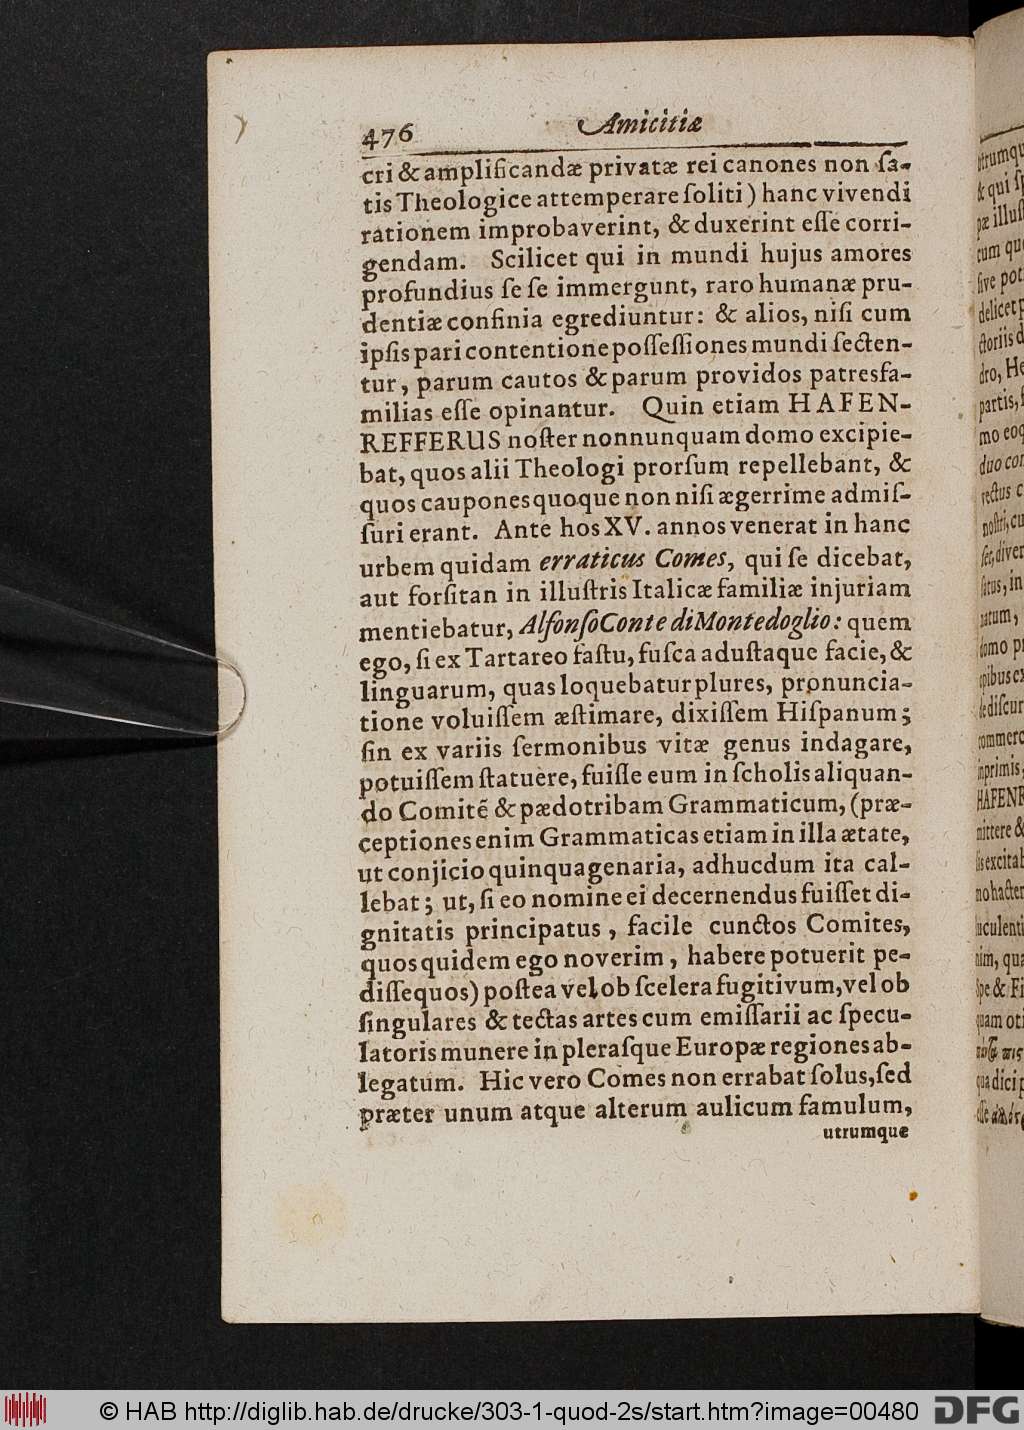 476 Amicitiæ
cri & amplificandæ privatæ rei canones non ſa-
tis Theologice attemperare ſoliti) hanc vivendi
rationem improbaverint, & duxerint eſſe corri-
gendam. Scilicet qui in mundi hujus amores
profundius ſe ſe immergunt, raro humanæ pru-
dentiæ confinia egrediuntur: & alios, niſi cum
ipſis pari contentione poſſeſſiones mundi ſecten-
tur, parum cautos & parum providos patresfa-
milias eſſe opinantur. Quin etiam HAFEN-
REFFERUS noſter nonnunquam domo excipie-
bat, quos alii Theologi prorſum repellebant, &
quos caupones quoque non niſi ægerrime admiſ-
ſuri erant. Ante hos XV. annos venerat in hanc
urbem quidam erraticus Comes, qui ſe dicebat,
aut forſitan in illuſtris Italicæ familiæ injuriam
mentiebatur, Alfonſo Conte di Montedoglio: quem
ego, ſi ex Tartareo faſtu, fuſca aduſtaque facie, &
linguarum, quas loquebatur plures, pronuncia-
tione voluiſſem æſtimare, dixiſſem Hiſpanum;
ſin ex variis ſermonibus vitæ genus indagare,
potuiſſem ſtatuere, fuiſſe eum in ſcholis aliquan-
do Comitẽ & pædotribam Grammaticum, (præ-
ceptiones enim Grammaticas etiam in illa ætate,
ut conjicio quinquagenaria, adhucdum ita cal-
lebat; ut, ſi eo nomine ei decernendus fuiſſet di-
gnitatis principatus, facile cunctos Comites,
quos quidem ego noverim, habere potuerit pe-
diſſequos) poſtea vel ob ſcelera fugitivum, vel ob
ſingulares & tectas artes cum emiſſarii ac ſpecu-
latoris munere in pleraſque Europæ regiones ab-
legatum. Hic vero Comes non errabat ſolus, ſed
præter unum atque alterum aulicum famulum,
utrumque
© HAB http://diglib.hab.de/drucke/303-1-quod-2s/start.htm?image=00480 DFG